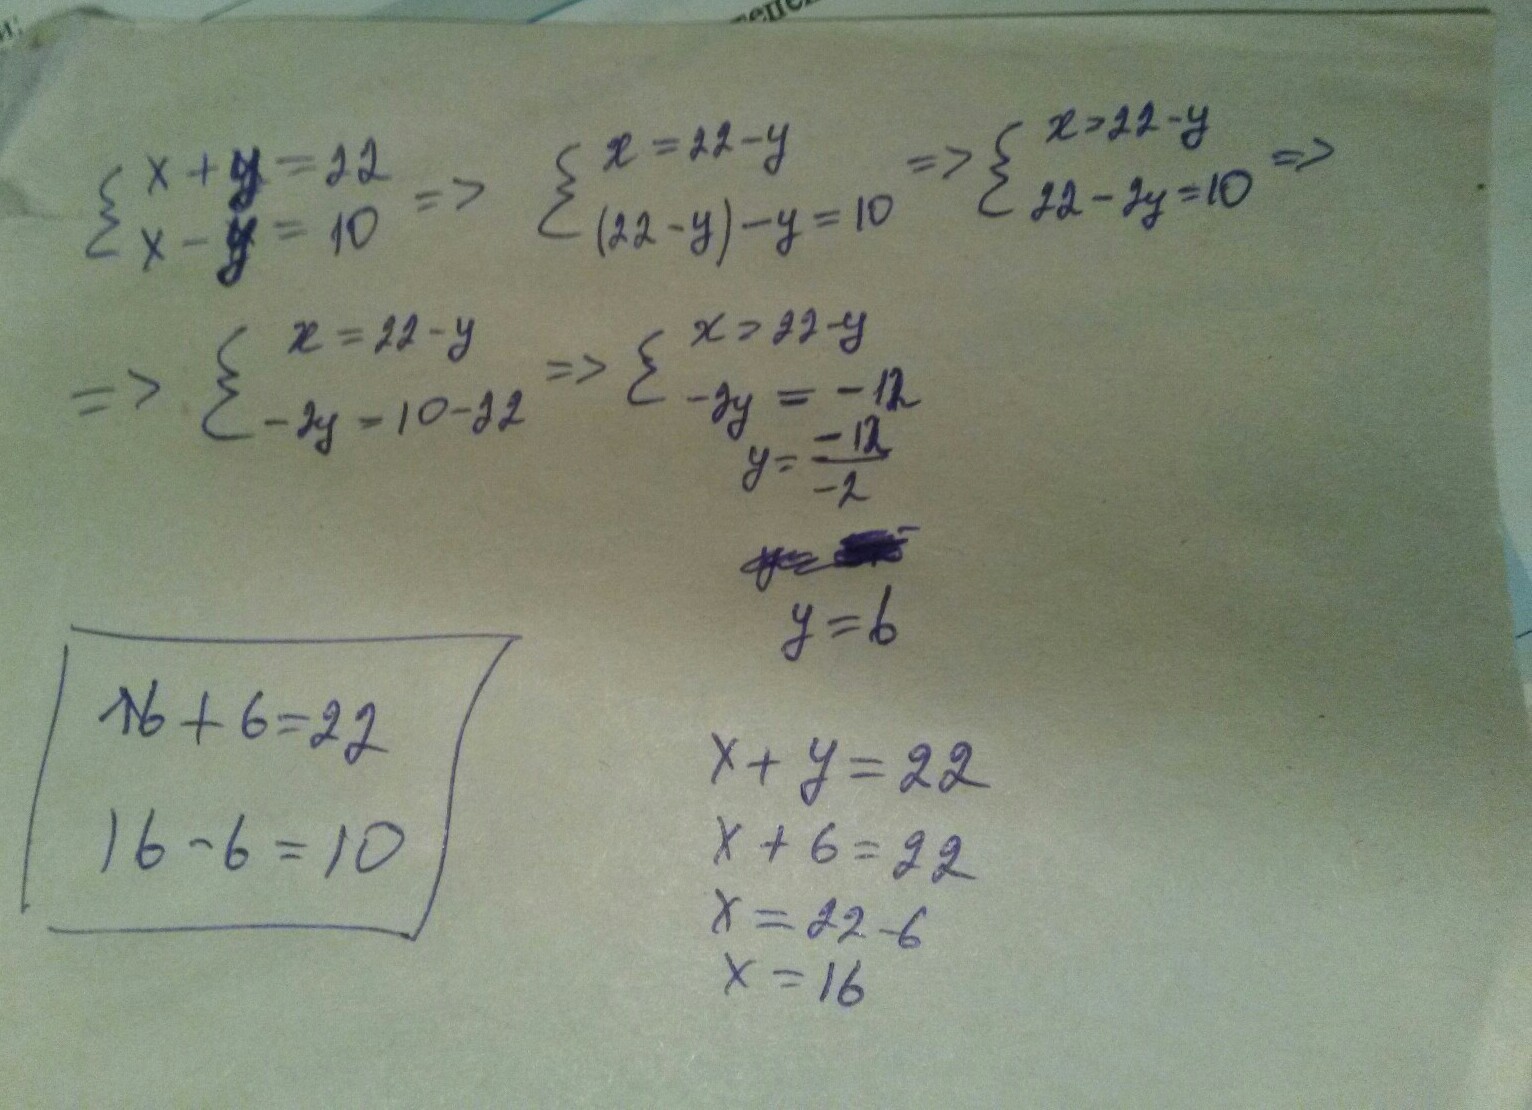 { x + y = 22
x - y = 10 =>
{ x = 22 - y
(22 - y) - y = 10 =>
{ x = 22 - y
22 - 2y = 10 =>
=> { x = 22 - y
-2y = 10 - 22 =>
{ x = 22 - y
-2y = -12
y = -12/-2
y = 6
16 + 6 = 22
16 - 6 = 10
x + y = 22
x + 6 = 22
x = 22 - 6
x = 16